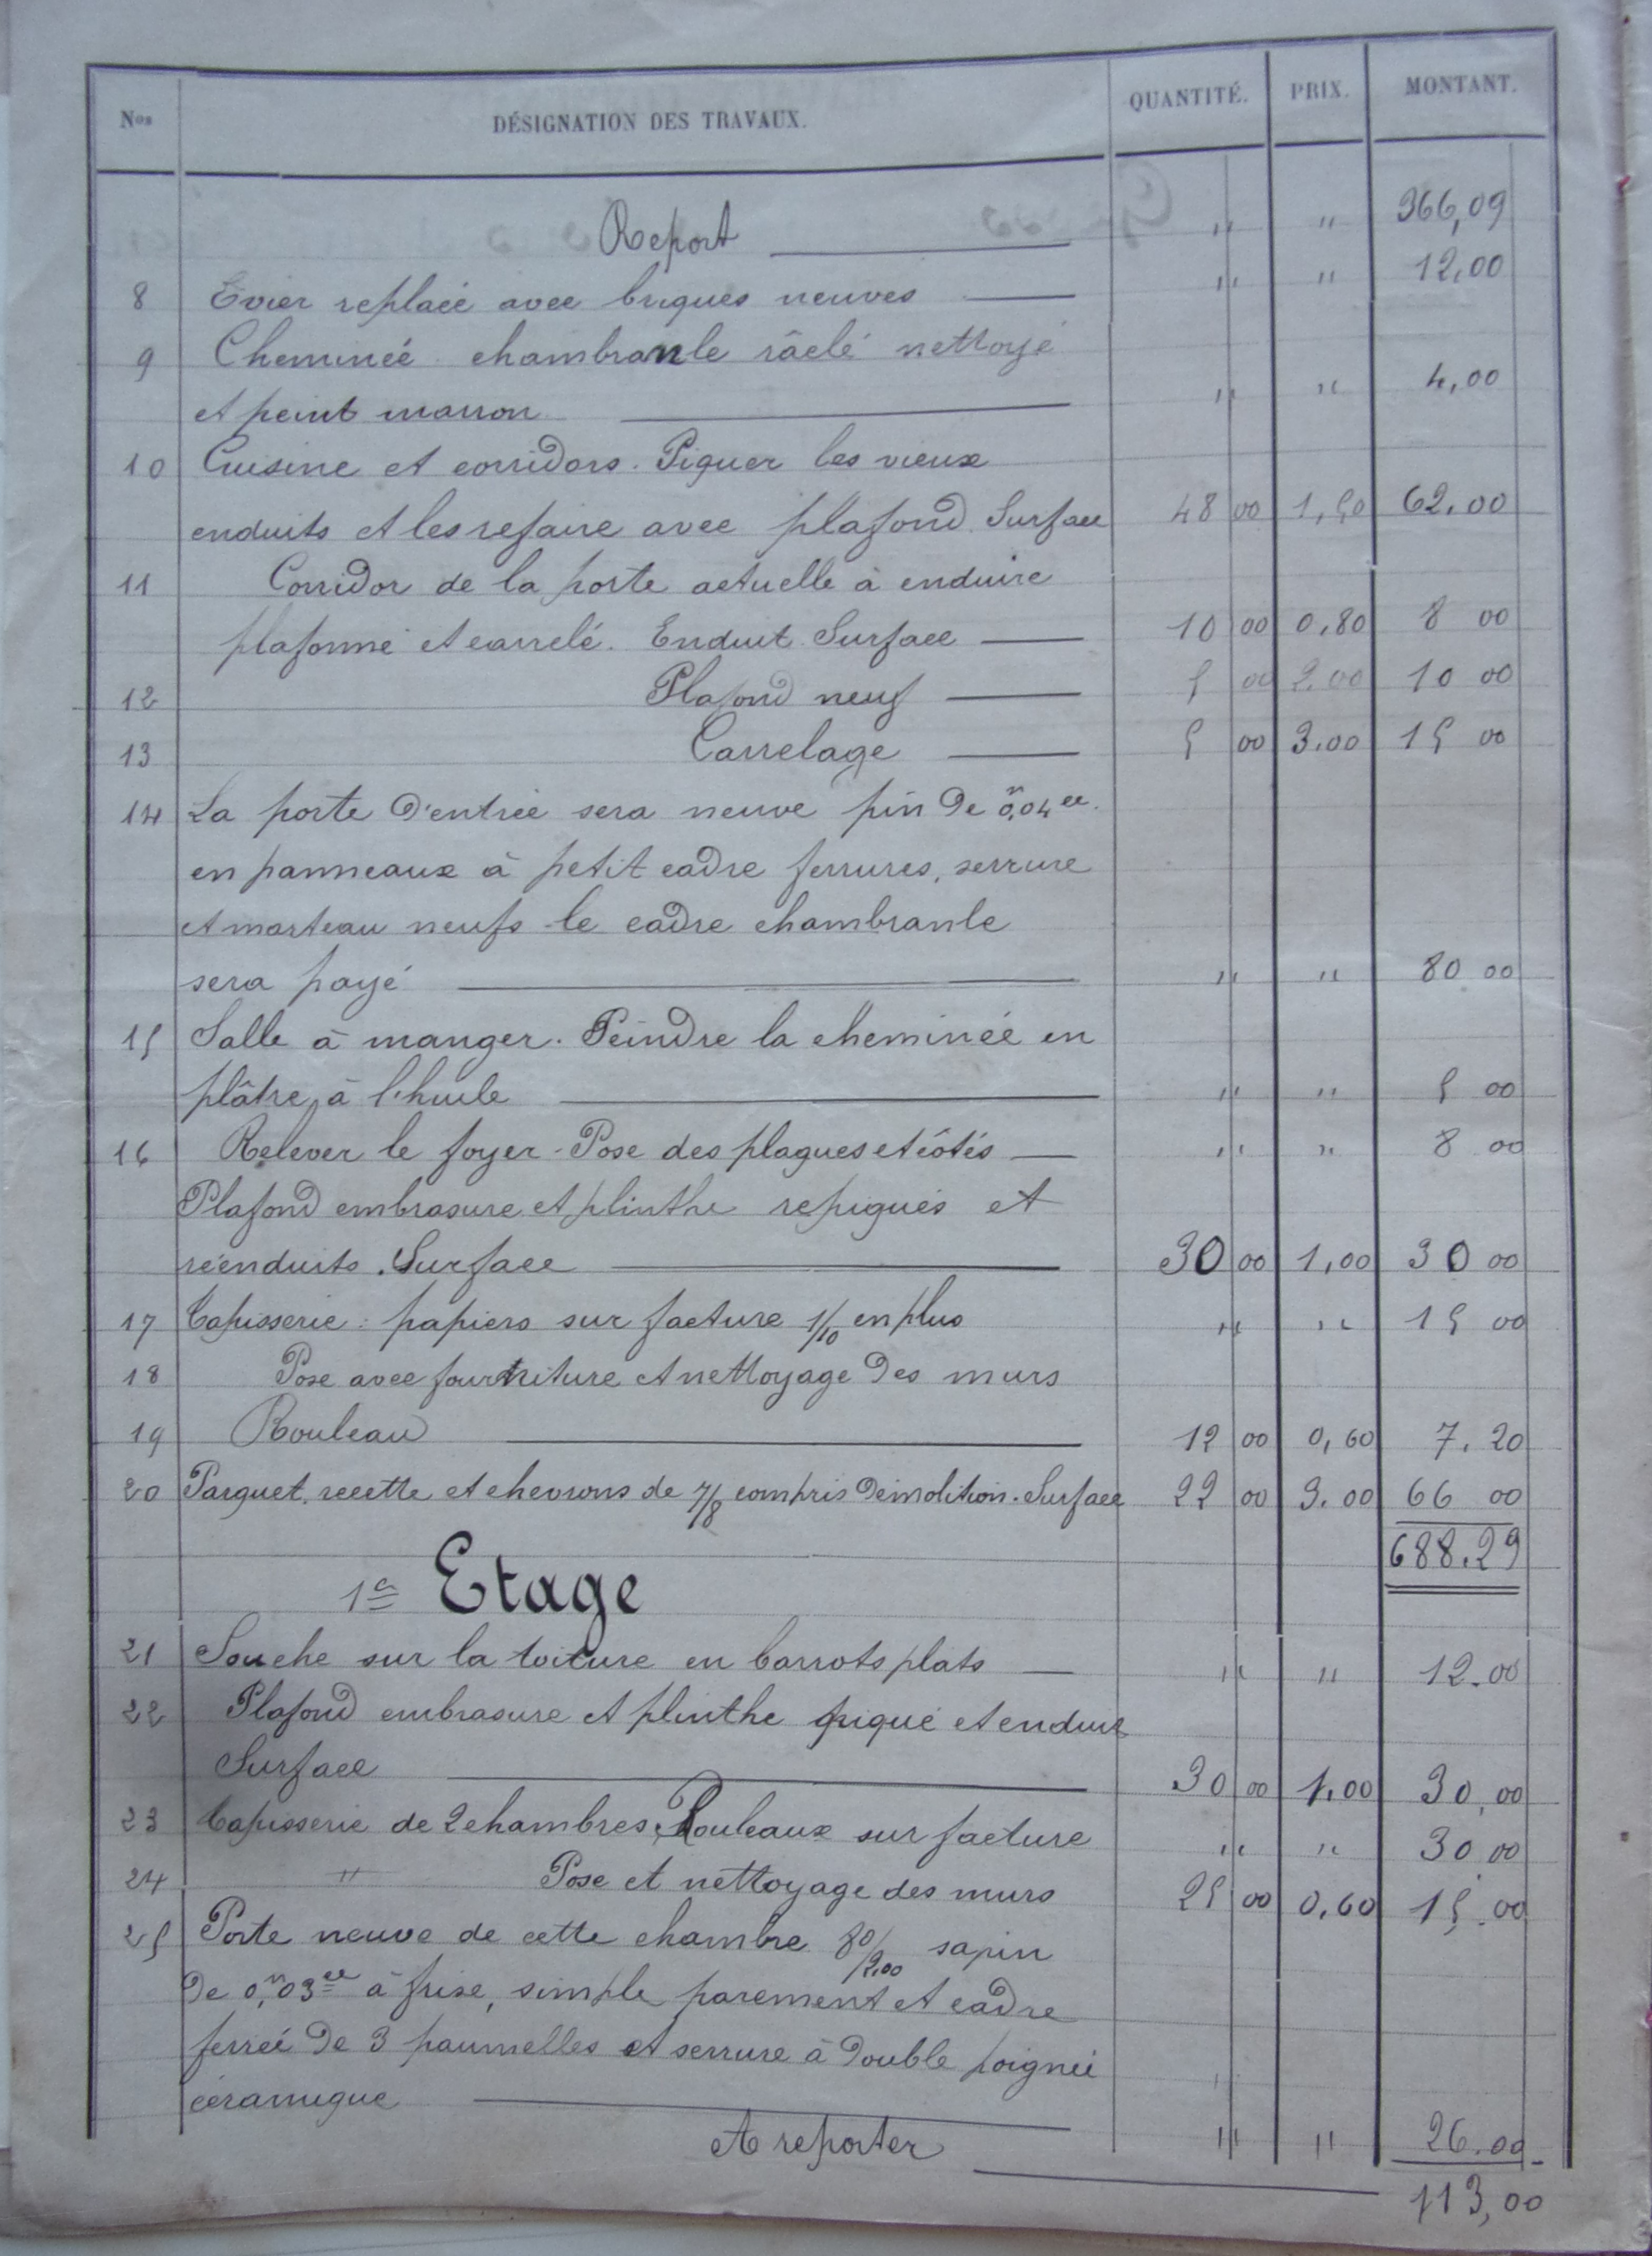 Nos DÉSIGNATION DES TRAVAUX. QUANTITÉ. PRIX. MONTANT.
Report " " 366,09
8 Evier replacé avec briques neuves " " 12,00
9 Cheminée chambranle râclé nettoyé
et peint marron " " 4,00
10 Cuisine et corridors. Piquer les vieux
enduits et les refaire avec plafond Surface 48 00 1,50 62.00
11 Corridor de la porte actuelle à enduire
plafonné et carrelé. Enduit Surface 10 00 0,80 8 00
12 Plafond neuf 5 00 2.00 10 00
13 Carrelage 5 00 3.00 15 00
14 La porte d'entrée sera neuve pin de 0,m04cc.
en panneaux à petit cadre ferrures, serrure
et marteau neufs le cadre chambranle
sera payé " " 80 00
15 Salle à manger. Peindre la cheminée en
plâtre, à l'huile " " 5 00
16 Relever le foyer - Pose des plaques et côtés " " 8 00
Plafond embrasure et plinthe repiqués et
réenduits. Surface 30 00 1,00 30 00
17 Tapisserie : papiers sur facture 1/10 en plus " " 15 00
18 Pose avec fourniture et nettoyage des murs
19 Rouleau 12 00 0,60 7.20
20 Parquet, recette et chevrons de 7/8 compris démolition. Surface 22 00 3.00 66 00
688.29
1e Etage
21 Souche sur la toiture en barrots plats " " 12.00
22 Plafond embrasure et plinthe piqué et enduit
Surface 30 00 1,00 30,00
23 Tapisserie de 2 chambres, Rouleaux sur facture " " 30.00
24 " Pose et nettoyage des murs 25 00 0,60 15.00
25 Porte neuve de cette chambre 80/2.00 sapin
de 0,m03cc à frise, simple parement et cadre
ferrée de 3 paumelles et serrure à double poignée
céramique
A reporter " " 26.00
113,00